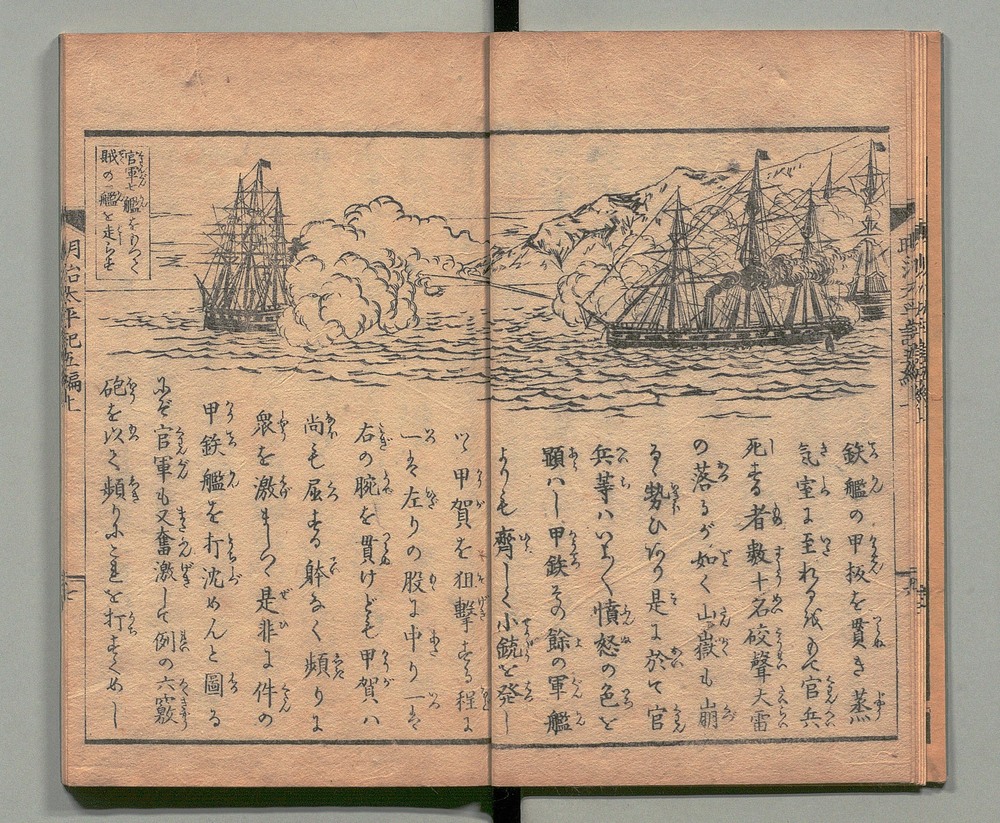 鉄艦の甲板を貫き蒸
気室に至れるをもて官兵
死する者数十名砲聲大雷
の落るが如く山嶽も崩
るゝ勢ひなり是に於て官
兵等ハいたく憤怒の色を
顕ハし甲鉄その餘の軍艦
よりも齊しく小銃を発し
いと甲賀を狙撃する程に
一は左りの股に中り一は
右の腕を貫けども甲賀ハ
尚も屈する躰なく頻りに
衆を激まし是非に件の
甲鉄艦を打沈めんと圖る
にぞ官軍も又奮激して例の六竅
砲を以て頻りにこれを打すくめし
官軍七艦をもつて
賊の一艦を走らす
明治太平記五編上